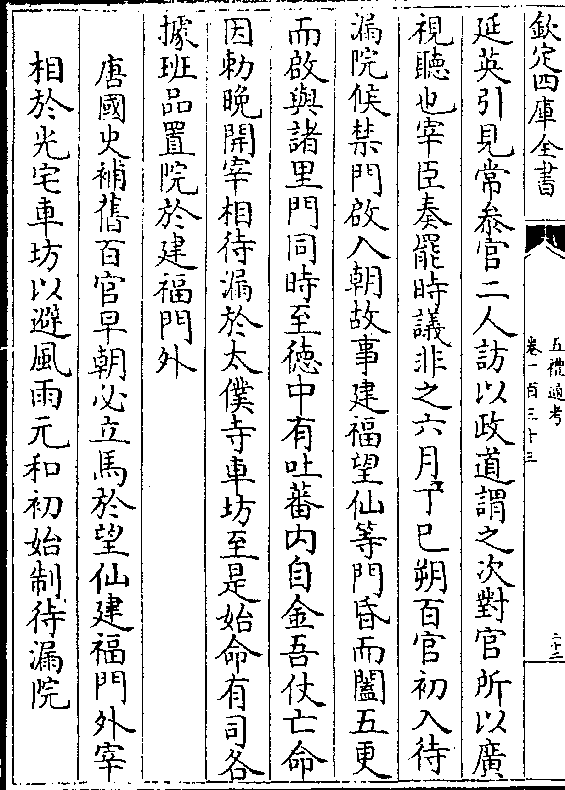 欽定四庫全書
五禮通考
卷一百三十三
二十二
延英引見常參官二人訪以政道謂之次對官所以廣
視聽也宰臣奏罷時議非之六月丁巳朔百官初入待
漏院候禁門啟入朝故事建福望仙等門昏而闔五更
而啟與諸里門同時至徳中有吐蕃内自金吾仗亡命
因勅晚開宰相待漏於太僕寺車坊至是始命有司各
據班品置院於建福門外
唐國史補舊百官早朝必立馬於望仙建福門外宰
相於光宅車坊以避風雨元和初始制待漏院